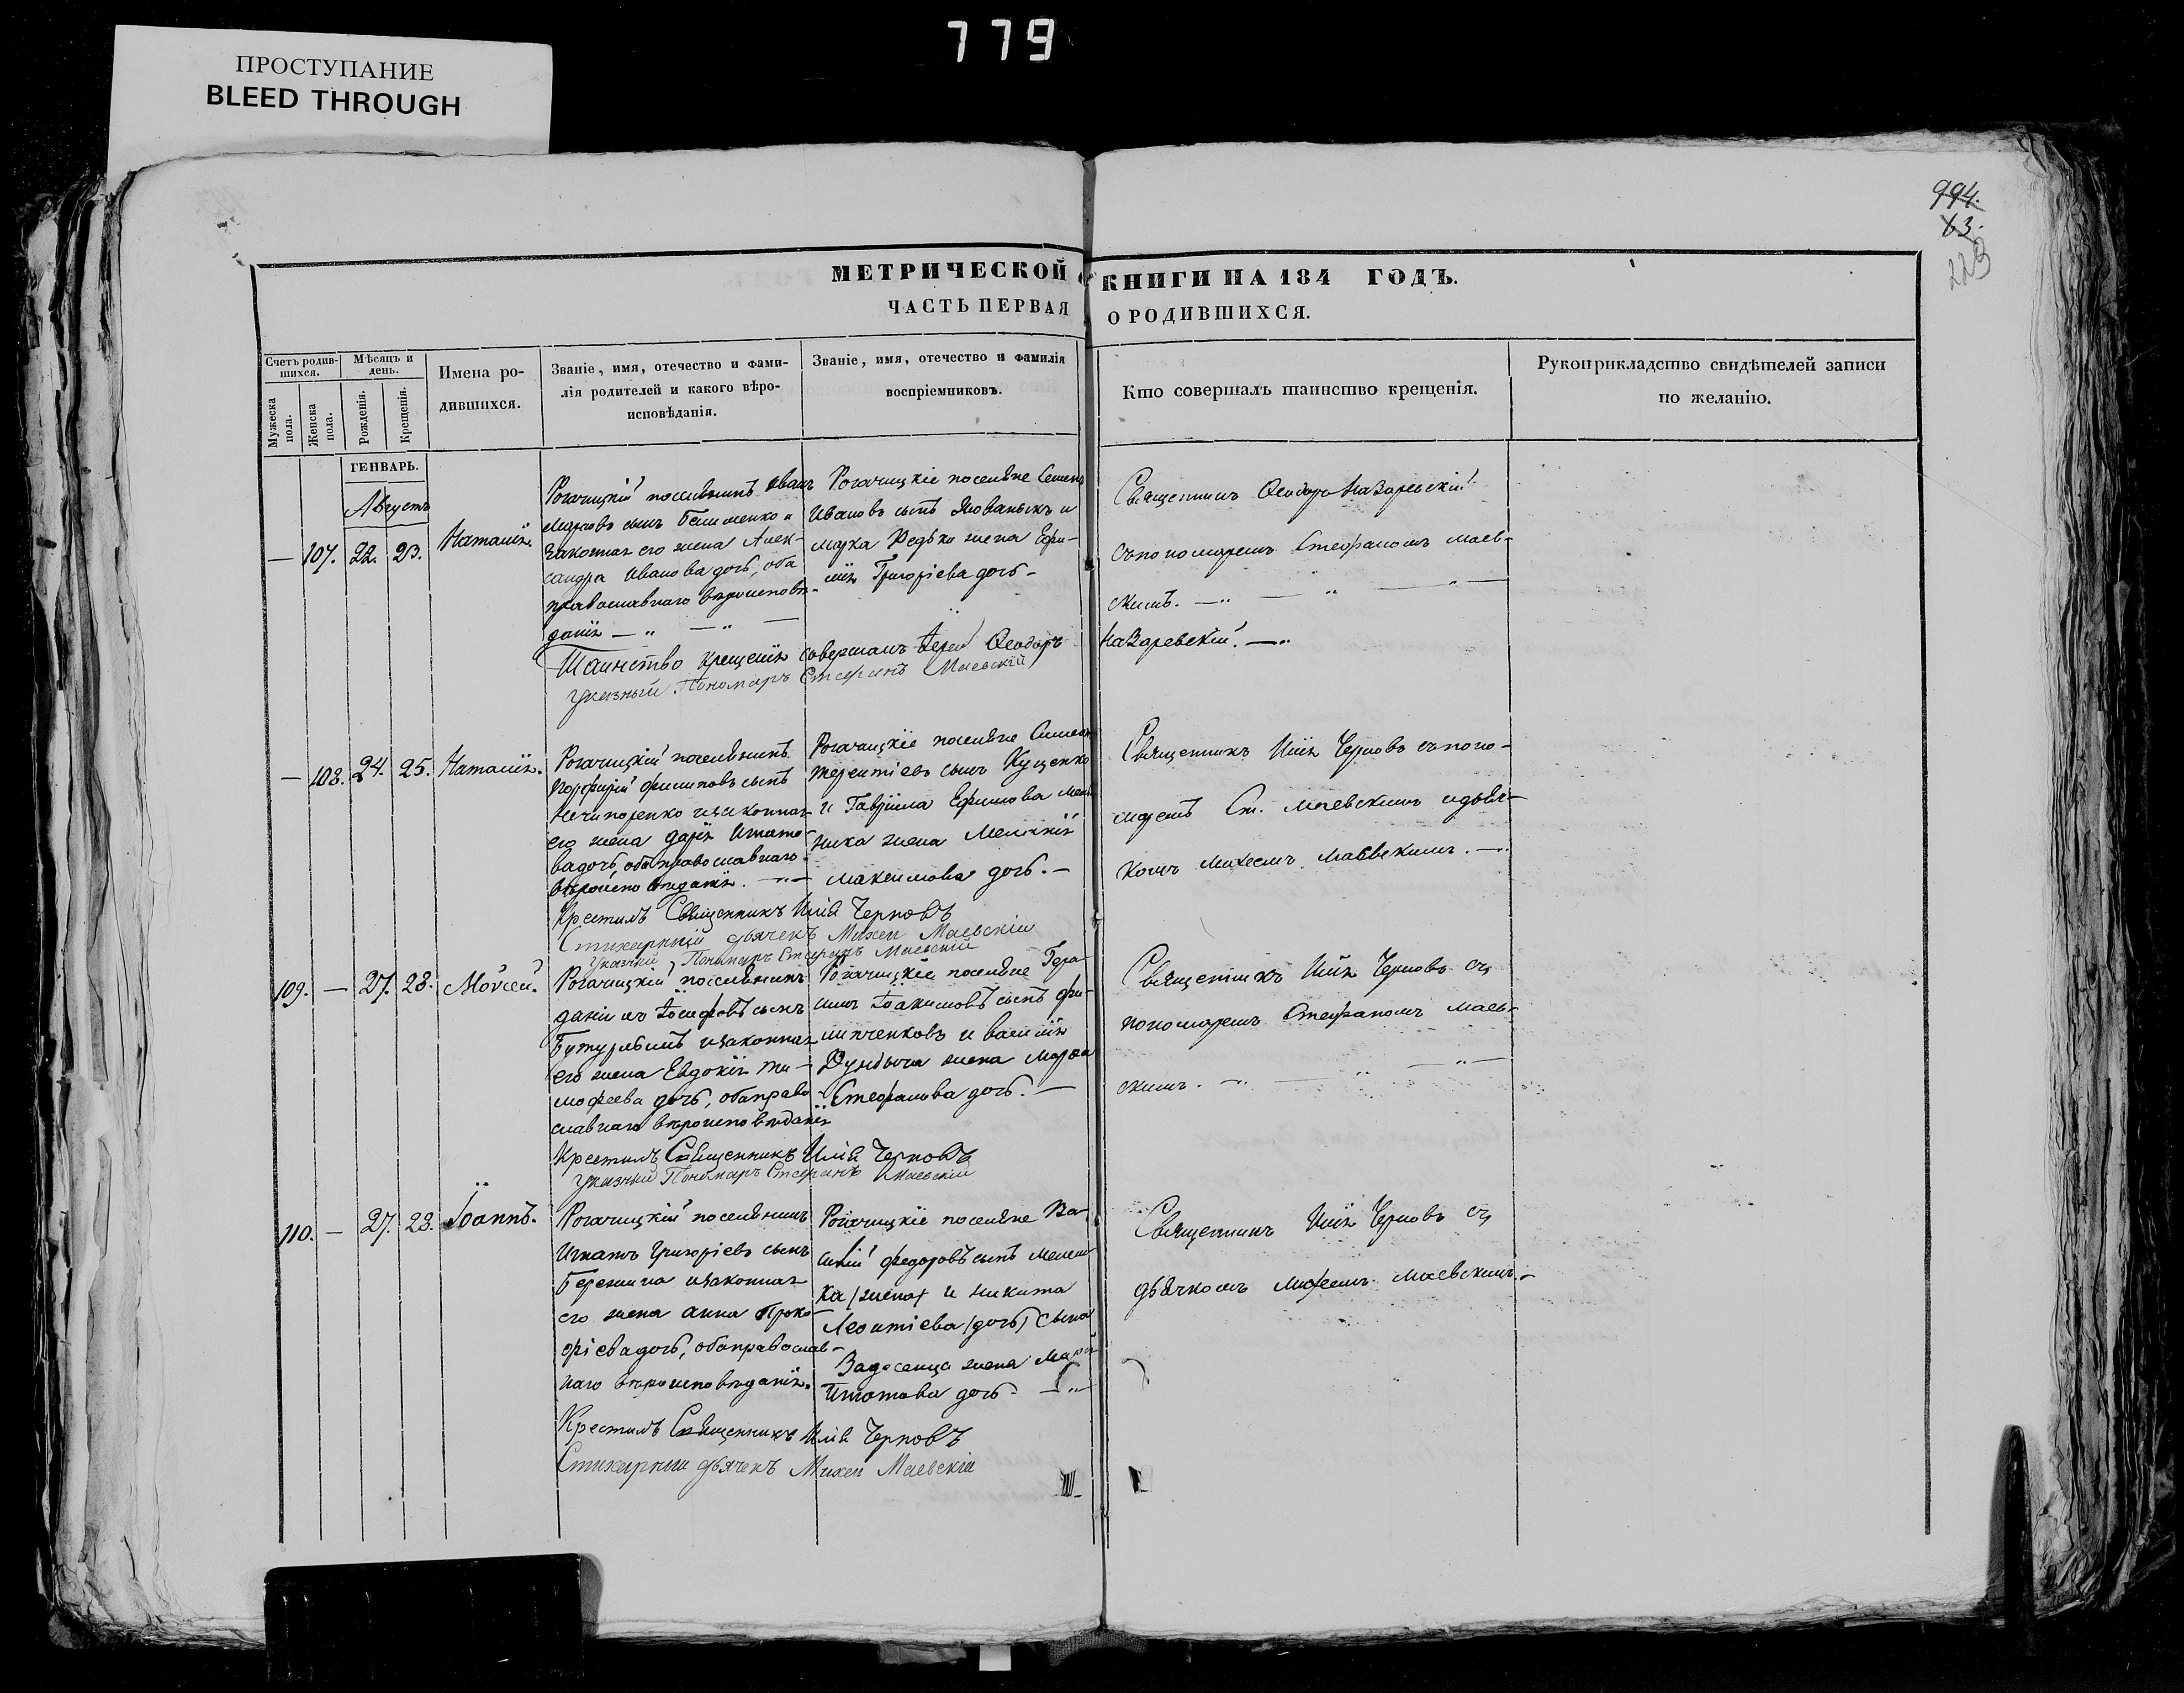 779
ПРОСТУПАНИЕ
BLEED THROUGH
994.
63.
223
МЕТРИЧЕСКОЙ КНИГИ НА 184 ГОДЪ.
ЧАСТЬ ПЕРВАЯ О РОДИВШИХСЯ.
Счетъ родив-
шихся.
Мѣсяцъ и
день.
Имена ро-
дившихся.
Званіе, имя, отечество и фами-
лія родителей и какого вѣро-
исповѣданія.
Званіе, имя, отечество и фамилія
воспріемниковъ.
Кто совершалъ таинство крещенія.
Рукоприкладство свидѣтелей записи
по желанію.
Мужеска
пола.
Женска
пола.
Рожденія.
Крещенія.
ГЕНВАРЬ.
Августъ
— 107. 22. 23. Наталія.
Рогачицкій поселянинъ Иванъ
Марковъ сынъ и
законная его жена Алек-
сандра Иванова дочь, оба
православнаго вѣроисповѣ-
данія — „ — „ —
Рогачицкіе поселяне Семенъ
Ивановъ сынъ и
Марка Редько жена Ефи-
мія Григоріева дочь —
Священникъ Ѳеодоръ Назаревскій
съ пономаремъ Стефаномъ Маев-
скимъ. — „ — „ — „ —
Таинство крещенія совершалъ Іерей Ѳеодоръ Назаревскій. — „
Указный Пономарь Стефанъ Маевскій
— 108. 24. 25. Наталія.
Рогачицкій поселянинъ
Порфирій Филиповъ сынъ
Нечипоренко и законная
его жена Дарія Игнато-
ва дочь, оба православнаго
вѣроисповѣданія. — „ —
Рогачицкіе поселяне Симеонъ
Терентіевъ сынъ Куценко
и Гавріила Ефимова Мель-
ника жена Меланія
Максимова дочь. —
Священникъ Илія Черновъ съ поно-
маремъ Ст. Маевскимъ и дьяч-
комъ Михеемъ Маевскимъ. — „
Крестилъ Священникъ Илія Черновъ
Стихарный дьячекъ Михей Маевскій
Указный Пономарь Стефанъ Маевскій
109. — 27. 28. Моисей.
Рогачицкій поселянинъ
Даніилъ Іосифовъ сынъ
и законная
его жена Евдокія Ти-
мофеева дочь, оба право-
славнаго вѣроисповѣданія
Рогачицкіе поселяне Гера-
симъ Іоакимовъ сынъ Фи-
липченковъ и Василія
жена Марѳа
Стефанова дочь. —
Священникъ Илія Черновъ съ
пономаремъ Стефаномъ Маев-
скимъ. — „ — „ — „ —
Крестилъ Священникъ Илія Черновъ
Указный Пономарь Стефанъ Маевскій
110. — 27. 28. Іоаннъ.
Рогачицкій поселянинъ
Игнатъ Григоріевъ сынъ
и законная
его жена Анна Проко-
фіева дочь, оба православ-
наго вѣроисповѣданія.
Рогачицкіе поселяне Ва-
силій Федоровъ сынъ
(жена) и Никита
Леонтіева (дочь) сына
жена
Игнатова дочь — „
Священникъ Илія Черновъ съ
дьячкомъ Михеемъ Маевскимъ. —
Крестилъ Священникъ Илія Черновъ
Стихарный дьячекъ Михей Маевскій